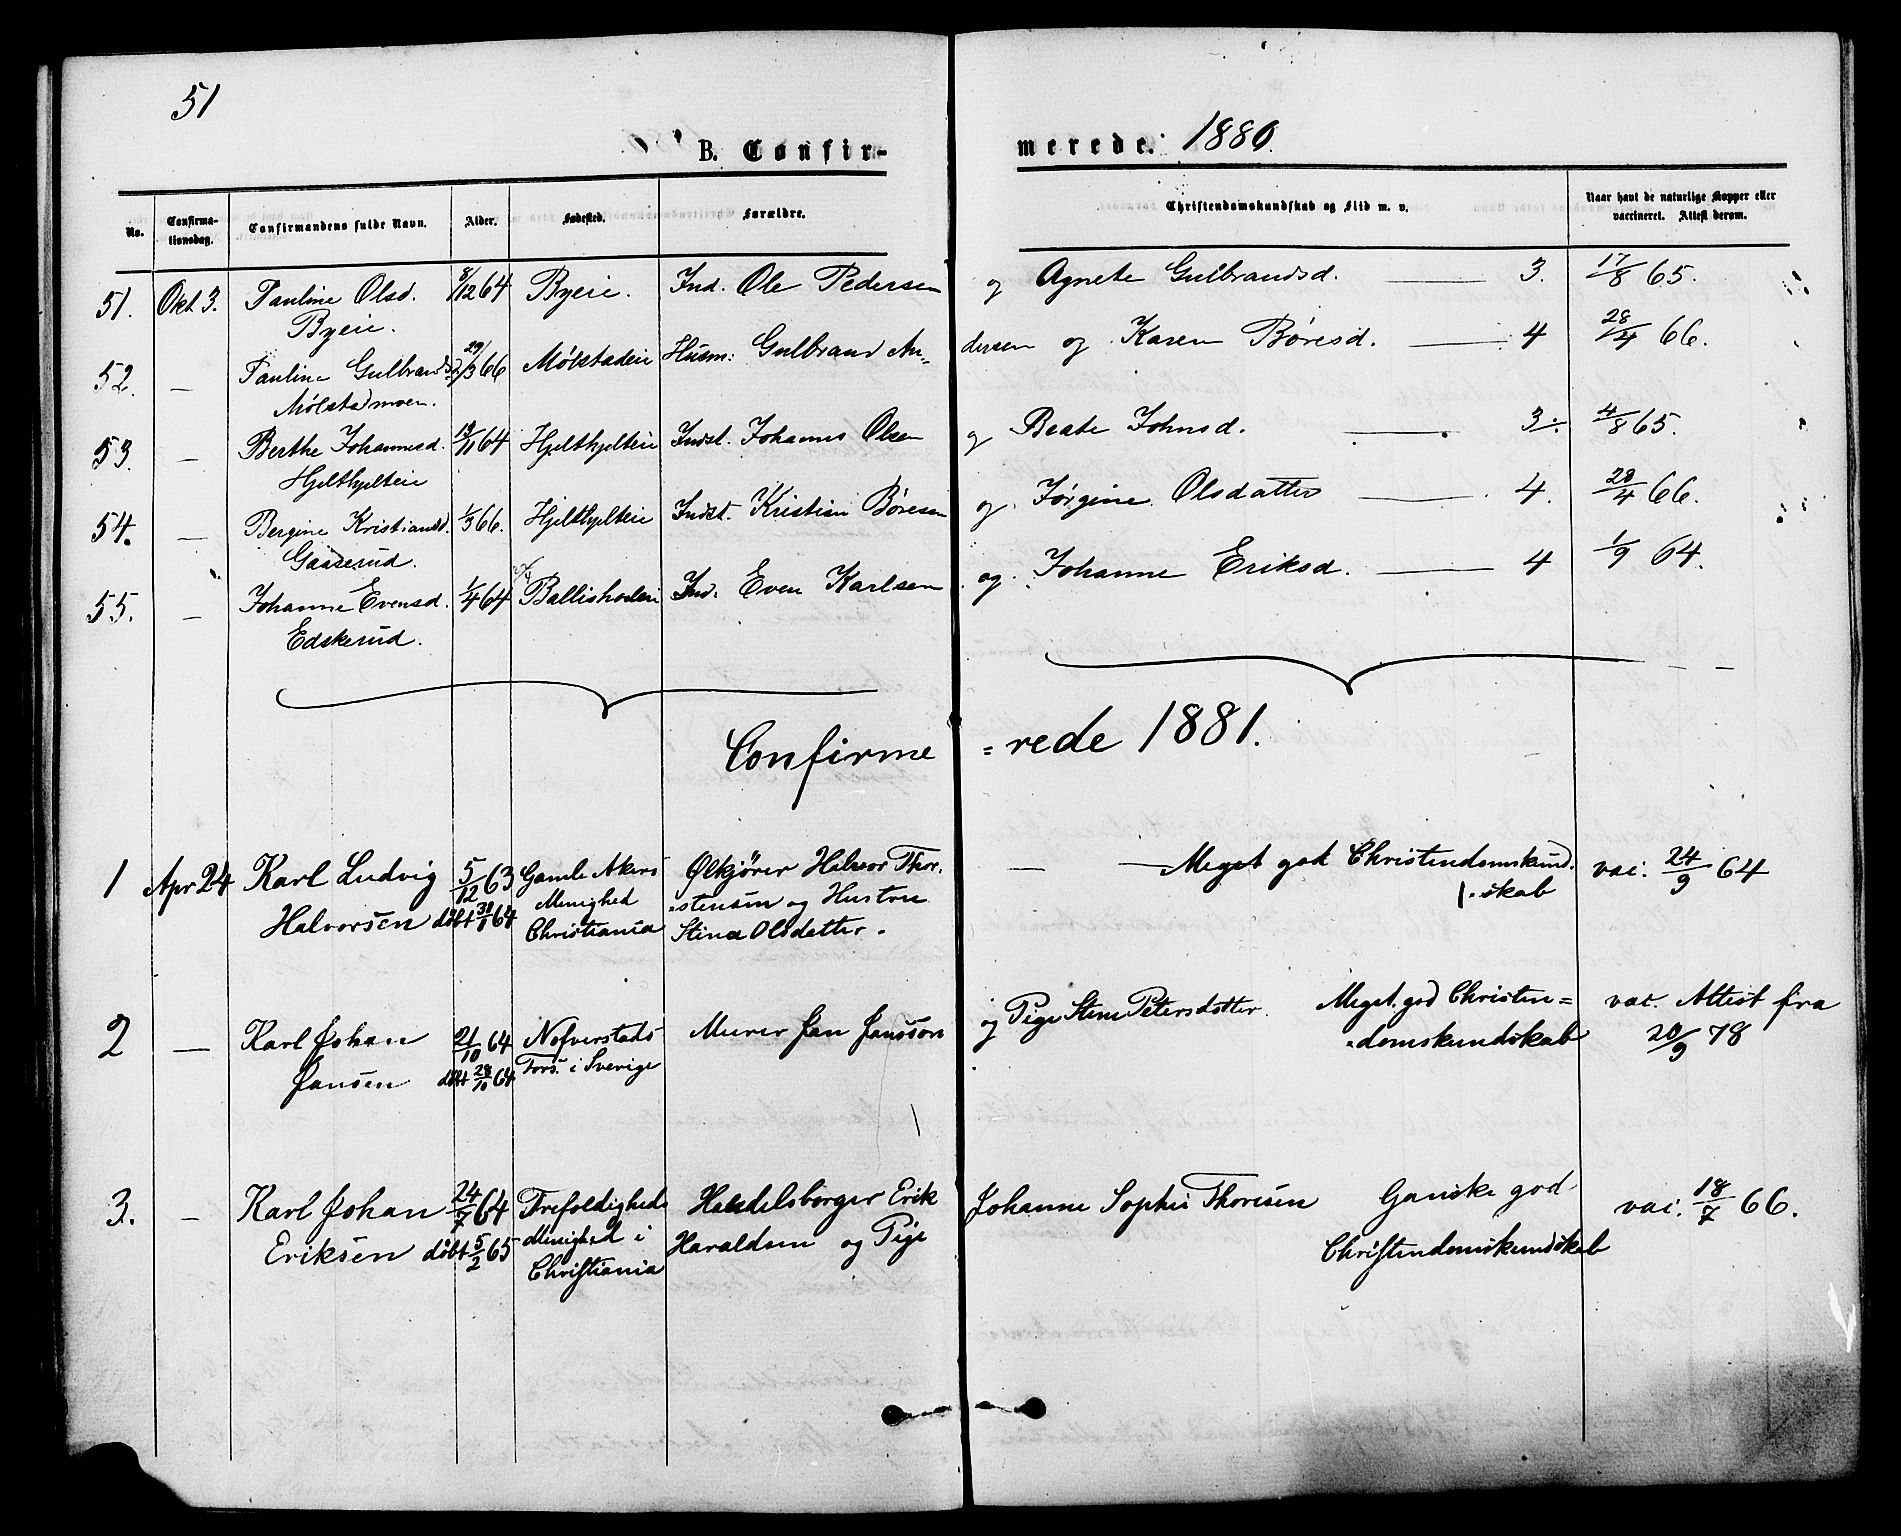 51
B. Confir-
merede. 1880.
No.
Confirma-
tionsdag.
Confirmandens fulde Navn.
Alder.
Fødested.
Forældre.
Christendomskundskab og Flid m. v.
Naar havt de naturlige Kopper eller
vaccineret. Attest derom.
51. Okt 3. Pauline Olsd. 8/12 64 Byeie. Ind. Ole Pedersen og Agnete Gulbrandsd. — 3. 17/8 65.
Byeie.
52. — Pauline Gulbrandsd. 29/3 66 Mølstadeie Husm: Gulbrand An-
dersen og Karen Børesd. — 4 28/4 66.
Mølstadmoen.
53. — Berthe Johannesd. 19/11 64 Hjelthjelteie Indst. Johannes Olsen og Beate Johnsd. — 3 4/8 65.
Hjelthjelteie
54. — Bergine Kristiansd. 1/3 66. Hjelthjelteie Indst. Kristian Børesen og Jørgine Olsdatter — 4. 28/4 66.
Gaaserud.
55. — Johanne Evensd. 1/4 64 Ind. Even Karlsen og Johanne Eriksd. — 4 1/9 64.
Edskerud.
Confirme
=rede 1881.
1 Apr 24 Karl Ludvig 5/12 63 Gamle Akers Ølkjører Halvor Thor- — — Meget god Christendomskund- vac. 24/9 64
Halvorsen døbt 31/1 64 Menighed =stensen og Hustru skab
Christiania Stina Olsdatter.
2 — Karl Johan 21/10 64 Murer Jan Jansson og Pige Stine Petersdatter. Meget god Christen= vac. Attest fra
Jansen døbt 28/10 64 Fors. i Sverige =domskundskab 20/9 78
3. — Karl Johan 24/7 64 Trefoldigheds Handelsborger Erik Johanne Sophie Thoresen Ganske god vac. 18/7 66.
Eriksen døbt 5/2 65 Menighed i Haraldsen og Pige Christendomskundskab
Christiania